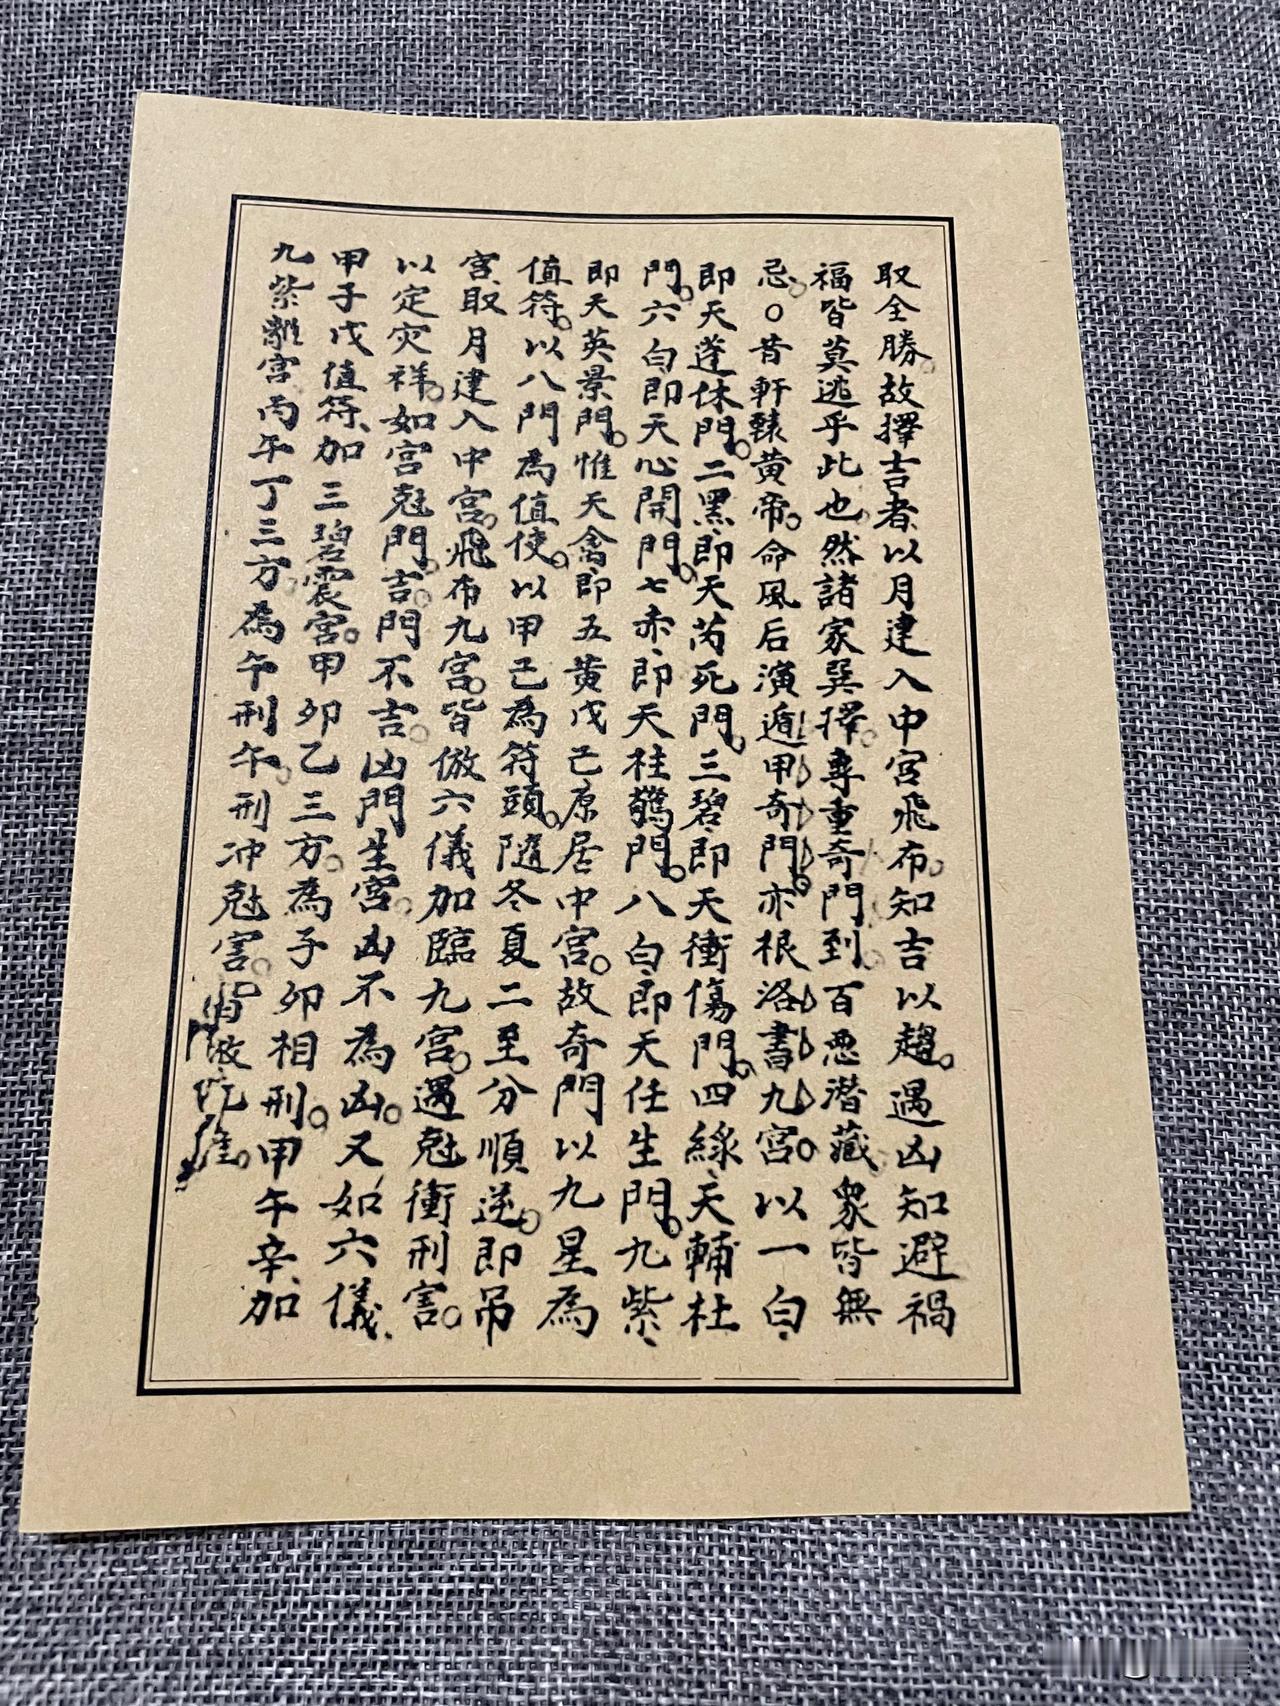 取全勝。故擇吉者、以月建入中宮飛布。知吉以趨。遇凶知避禍
福皆莫逃乎此也。然諸家巽擇。專重奇門到。百惡潛藏。衆皆無
忌。○昔軒轅黃帝。命風后演遁甲奇門。亦根洛書九宮。以一白、
即天蓬休門。二黑、即天芮死門。三碧、即天衝傷門。四綠、天輔杜
門。六白、即天心開門。七赤、即天柱驚門。八白、即天任生門。九紫、
即天英景門。惟天禽、即五黄戊己原居中宮。故奇門以九星為
值符。以八門為值使。以甲己為符頭。隨冬夏二至分順逆。即吊
宮取月建入中宮。飛布九宮。皆倣六儀加臨九宮。遇尅衝刑害。
以定灾祥。如宮尅門。吉門不吉。凶門生宮。凶不為凶。又如六儀、
甲子戊值符、加三碧震宮。甲卯乙三方。為子卯相刑。甲午辛、加
九紫離宮、丙午丁三方。為午刑午。刑冲尅害。